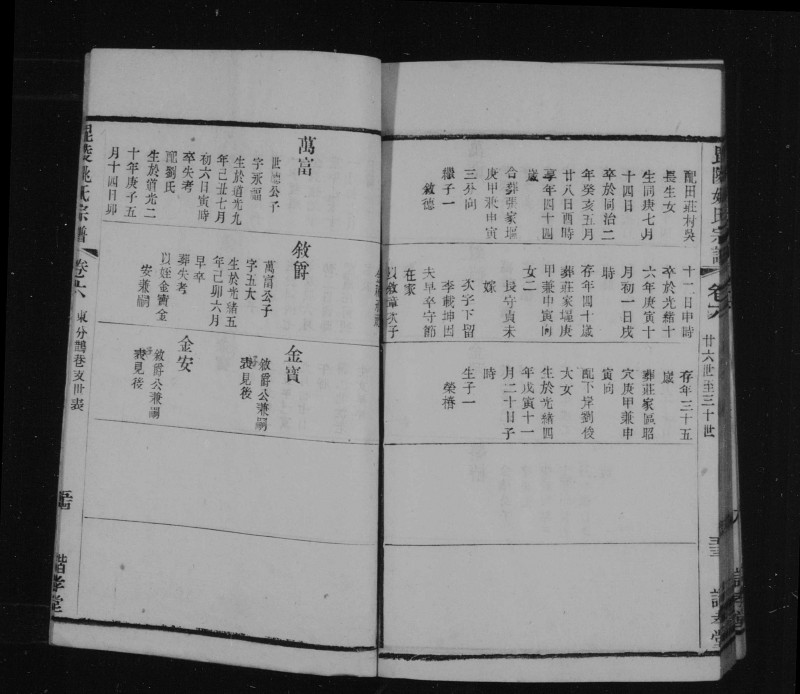 廿六世至三十世
配田莊村吳
長生女
生同庚七月
十四日
卒於同治二
年癸亥五月
廿八日酉時
享年四十四
歲
合葬張家堰
庚甲兼申寅
三分向
繼子一
敘德
十二日申時
卒於光緒十
六年庚寅十
月初一日戌
時
存年四十歲
葬莊家堰庚
甲兼申寅向
女二
長守貞未
嫁
次字下留
李載坤因
夫早卒守節
在家
存年三十五
歲
葬莊家區昭
穴庚甲兼申
寅向
配下岸劉俊
大女
生於光緒四
年戊寅十一
月二十日子
時
生子一
榮椿
萬富
世德公子
字永福
生於道光九
年己丑七月
初六日寅時
卒失考
配劉氏
生於道光二
十年庚子五
月十四日卯
敘爵
萬富公子
字五大
生於光緒五
年己卯六月
早卒
葬失考
以姪金寶金
安兼嗣
金寶
敘爵公兼嗣
表見後
金安
敘爵公兼嗣
表見後
毘陵姚氏宗譜
卷六
東分鵲巷支世表
諧孝堂